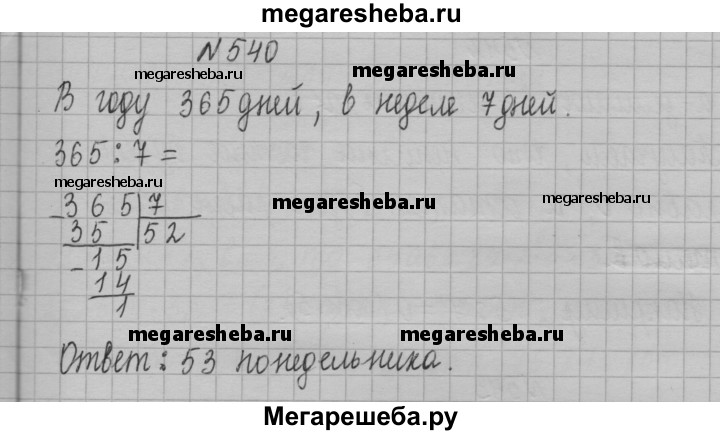 megaresheba.ru
N540
megaresheba.ru megaresheba.ru
В году 365 дней, в неделе 7 дней.
365:7=
megaresheba.ru
365|7 megaresheba.ru megaresheba.ru
35 |52
-15
14
1
megaresheba.ru megaresheba.ru
Ответ: 53 понедельника.
Мегарешеба.ру